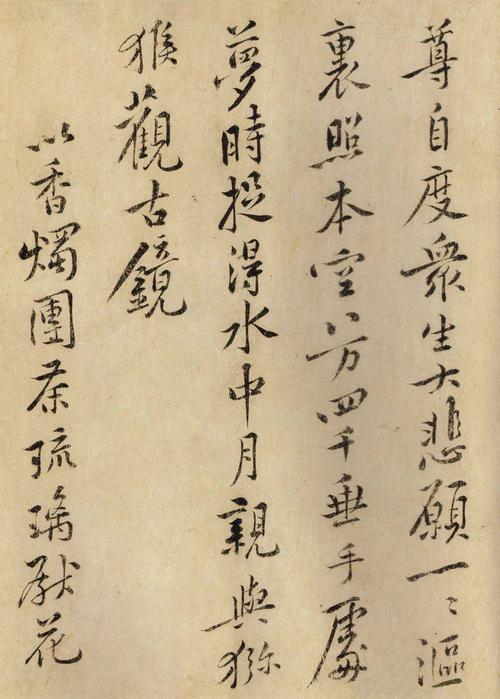 尊自度衆生大悲願一〻漚
裏照本空八万四千垂手處
夢時捉得水中月親與獼
猴觀古鏡
以香燭團茶琉璃獻花